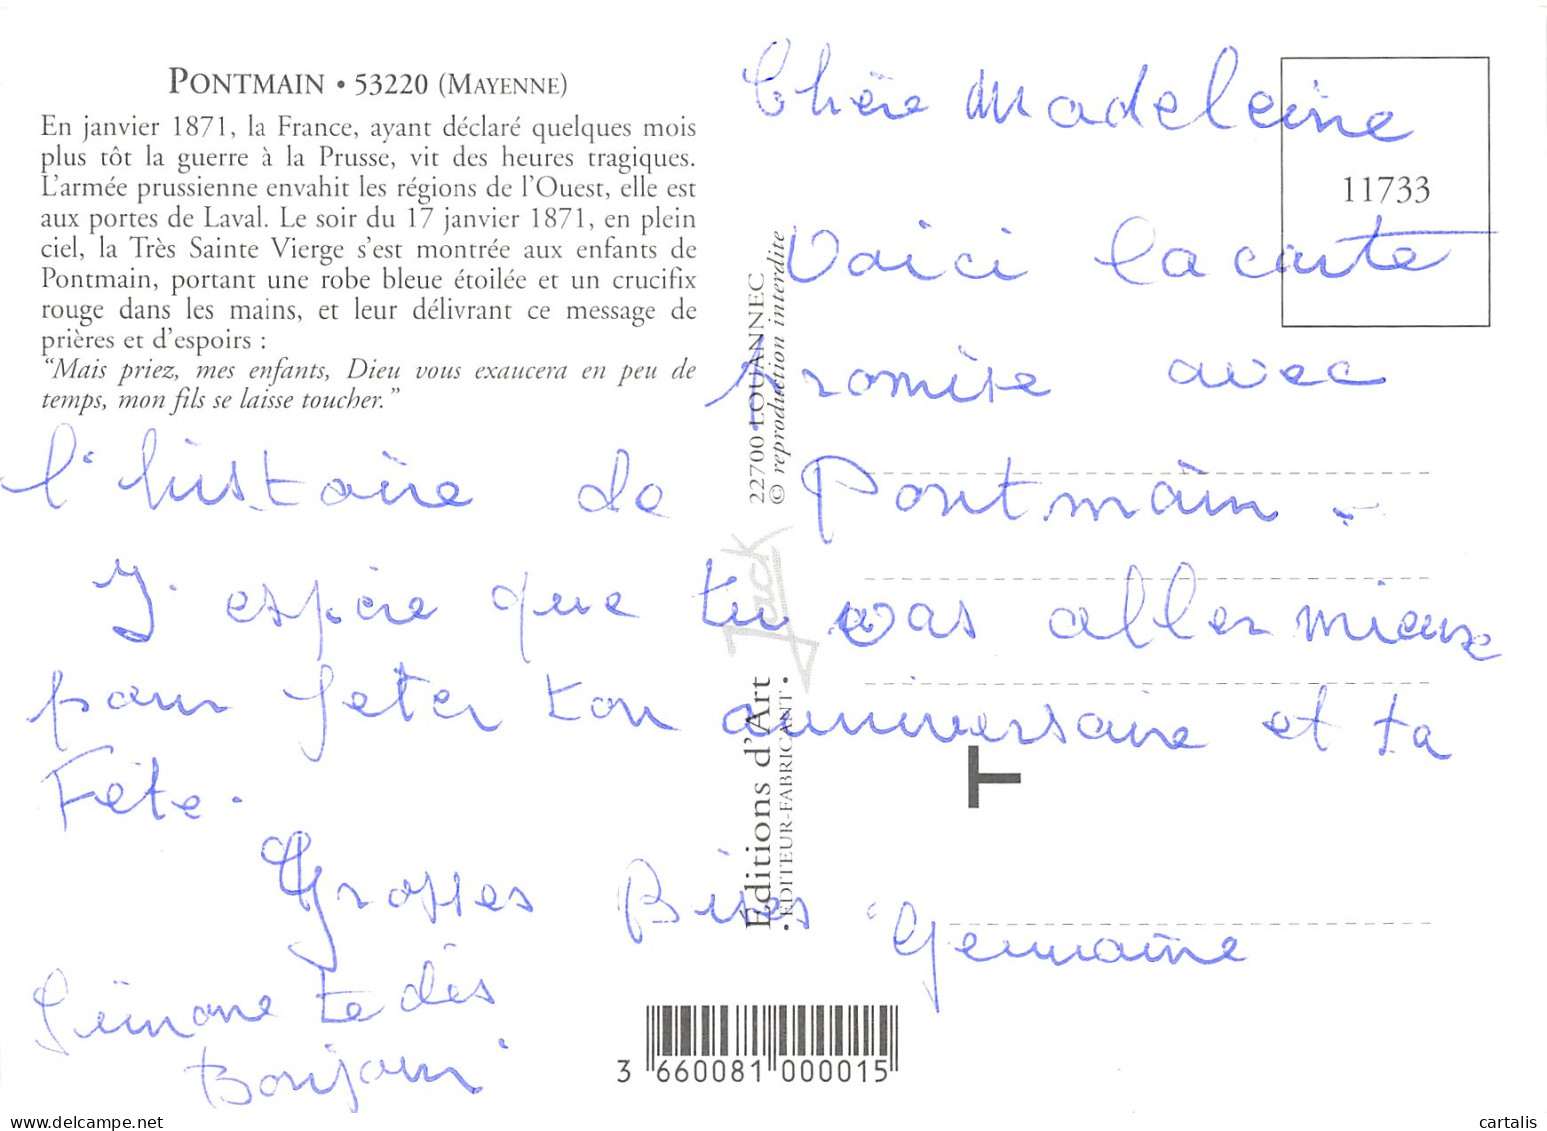 PONTMAIN • 53220 (MAYENNE)
En janvier 1871, la France, ayant déclaré quelques mois
plus tôt la guerre à la Prusse, vit des heures tragiques.
L'armée prussienne envahit les régions de l'Ouest, elle est
aux portes de Laval. Le soir du 17 janvier 1871, en plein
ciel, la Très Sainte Vierge s'est montrée aux enfants de
Pontmain, portant une robe bleue étoilée et un crucifix
rouge dans les mains, et leur délivrant ce message de
prières et d'espoirs :
“Mais priez, mes enfants, Dieu vous exaucera en peu de
temps, mon fils se laisse toucher.”
11733
Chère Madeleine
Voici la carte
promise avec
l'histoire de Pontmain -
J'espère que tu vas aller mieux
pour feter ton anniversaire et ta
Fête.
Grosses Bises Germaine
Simone te dis
Bonjour
Éditions d'Art Jack 22700 LOUANNEC
• EDITEUR-FABRICANT • © reproduction interdite
T
3 660081 000015
cartalis